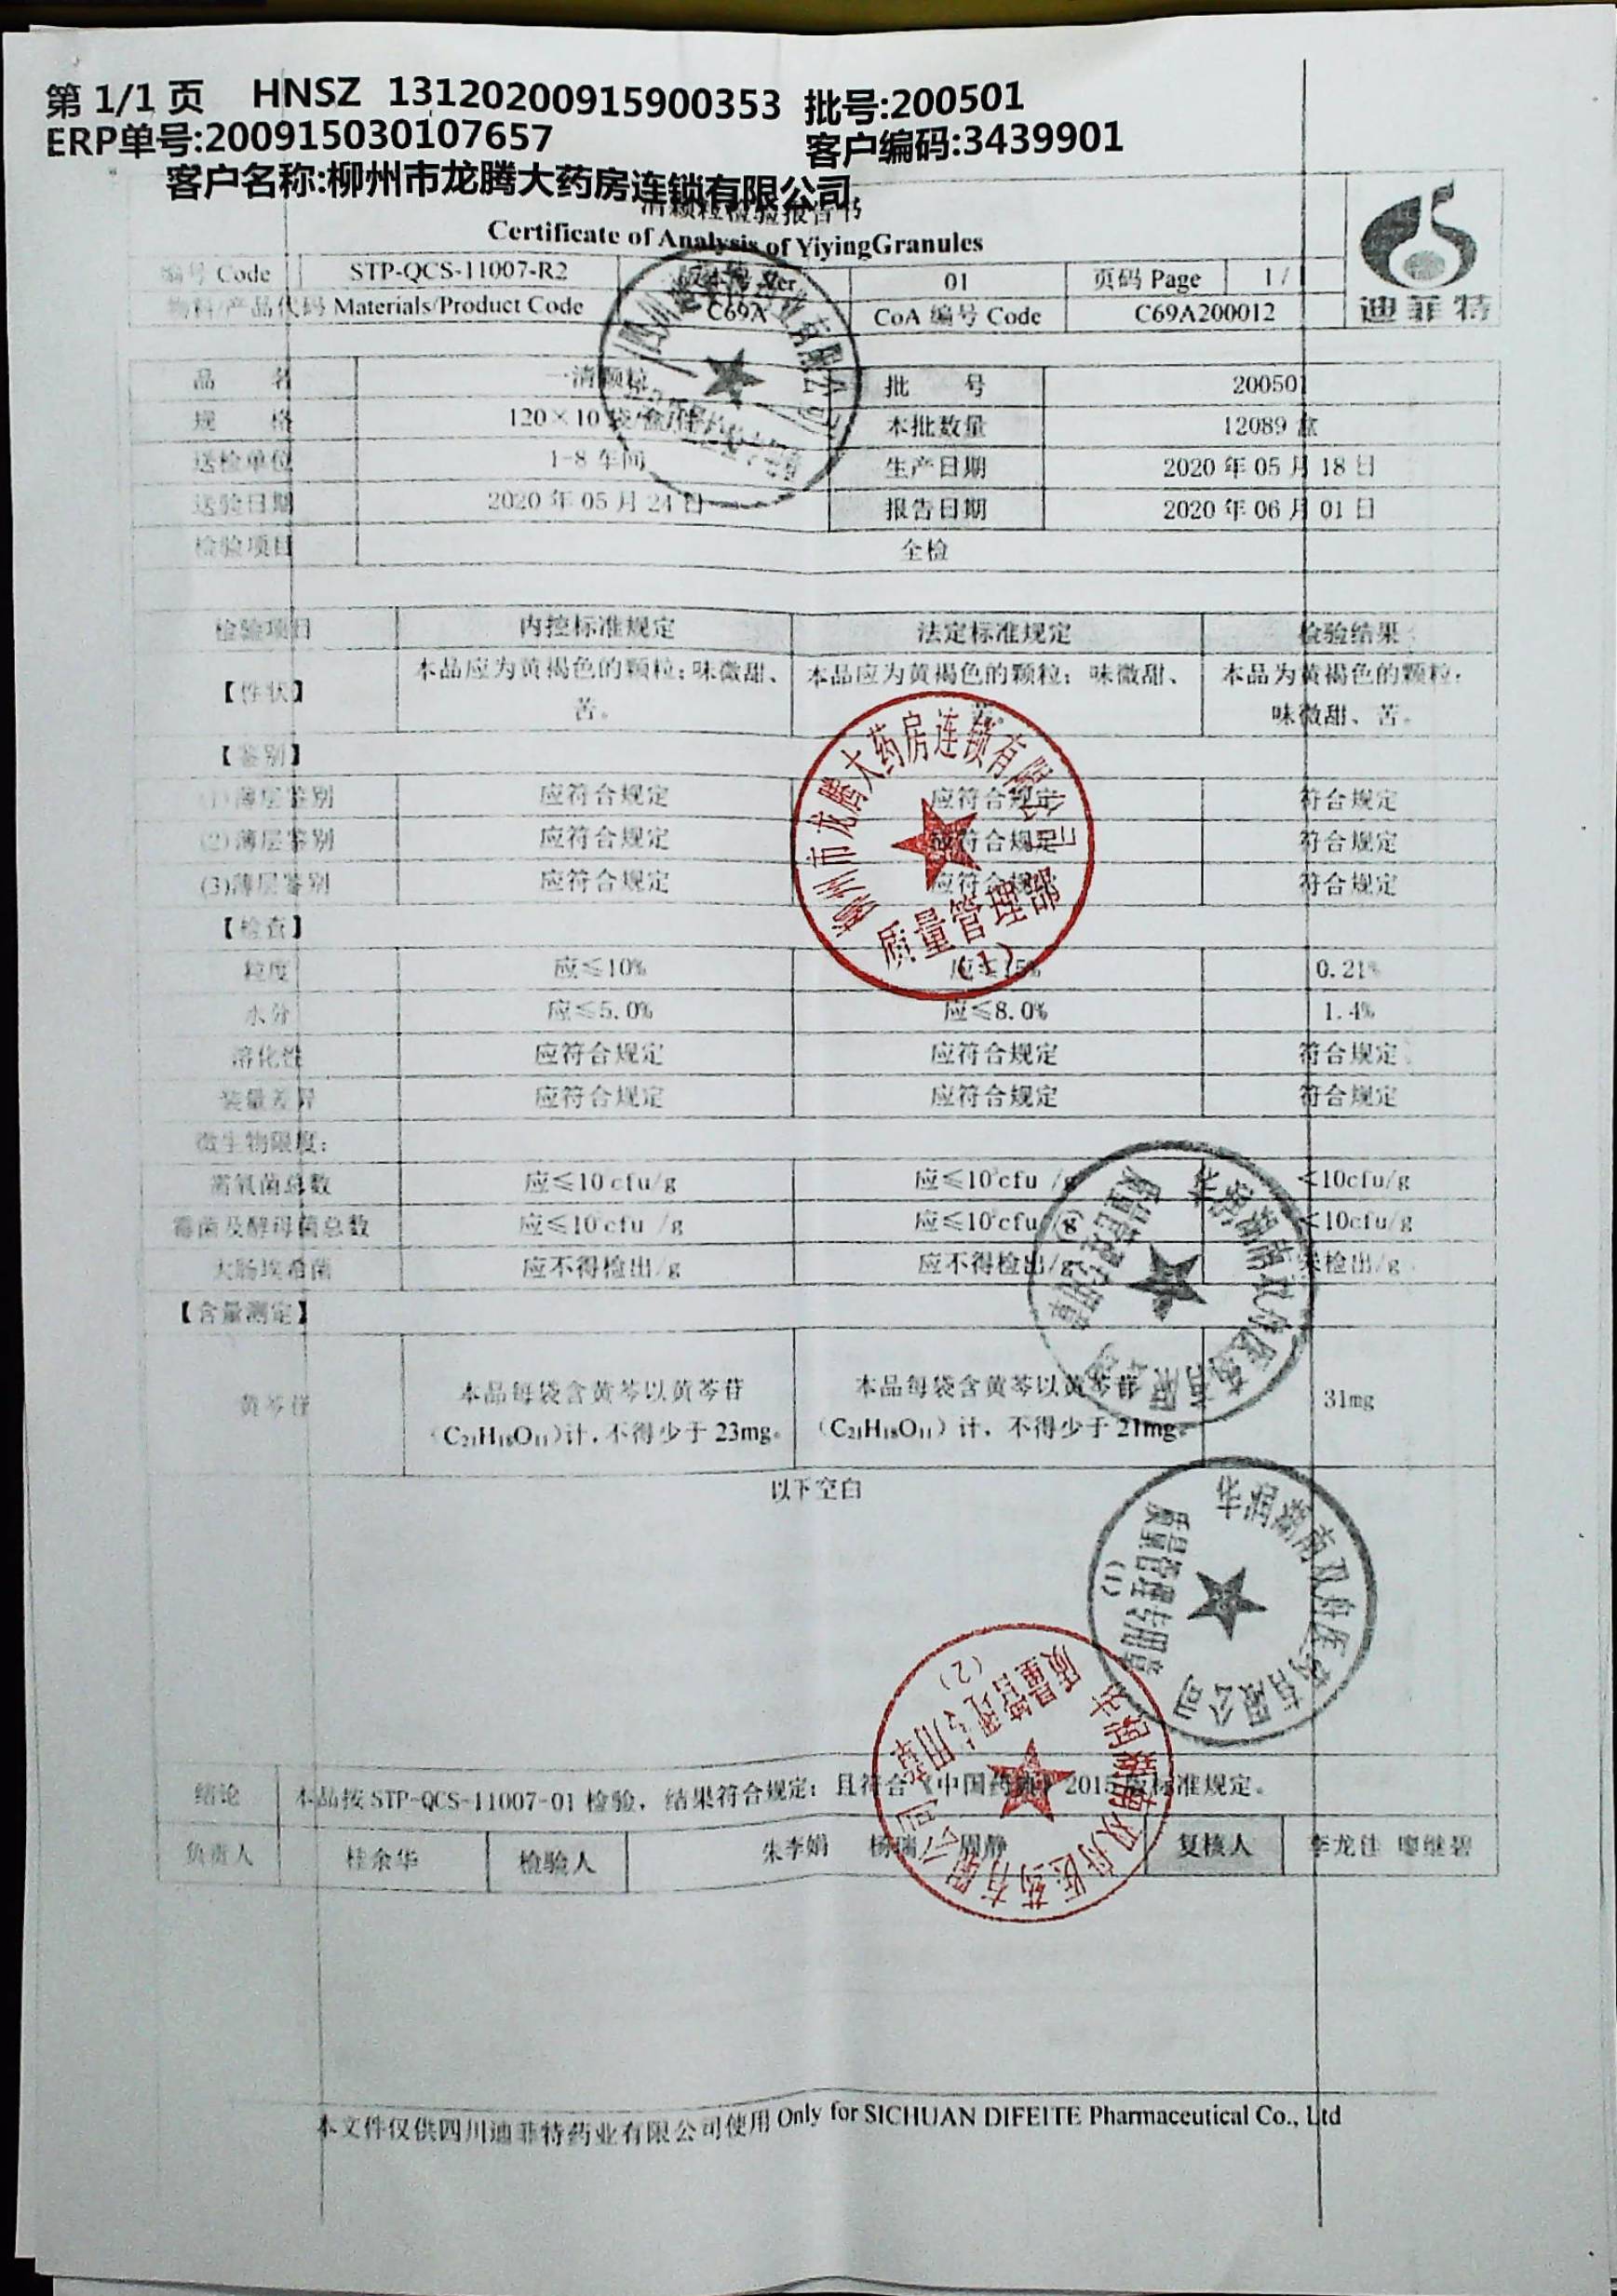 第 1/1 页 HNSZ 13120200915900353 批号:200501
ERP单号:200915030107657 客户编码:3439901
客户名称:柳州市龙腾大药房连锁有限公司
清颗粒检验报告书
Certificate of Analysis of YiyingGranules
编号 Code STP-QCS-11007-R2 版本号 Ver 01 页码 Page 1 /
物料/产品代码 Materials/Product Code C69A CoA 编号 Code C69A200012
迪菲特
品 名 一清颗粒 批 号 200501
规 格 120×10 袋/盒/件 本批数量 12089 盒
送检单位 1-8 车间 生产日期 2020 年 05 月 18 日
送验日期 2020 年 05 月 24 日 报告日期 2020 年 06 月 01 日
检验项目 全检
检验项目 内控标准规定 法定标准规定 检验结果
【性状】 本品应为黄褐色的颗粒；味微甜、苦。 本品应为黄褐色的颗粒；味微甜、苦。 本品为黄褐色的颗粒；味微甜、苦。
【鉴别】
(1)薄层鉴别 应符合规定 应符合规定 符合规定
(2)薄层鉴别 应符合规定 应符合规定 符合规定
(3)薄层鉴别 应符合规定 应符合规定 符合规定
【检查】
粒度 应≤10% 应≤15% 0.21%
水分 应≤5.0% 应≤8.0% 1.4%
溶化性 应符合规定 应符合规定 符合规定
装量差异 应符合规定 应符合规定 符合规定
微生物限度：
需氧菌总数 应≤10 cfu/g 应≤10 cfu /g <10cfu/g
霉菌及酵母菌总数 应≤10 cfu /g 应≤10 cfu /g <10cfu/g
大肠埃希菌 应不得检出/g 应不得检出/g 未检出/g
【含量测定】
黄芩苷 本品每袋含黄芩以黄芩苷（C₂₁H₁₈O₁₁）计，不得少于 23mg。 本品每袋含黄芩以黄芩苷（C₂₁H₁₈O₁₁）计，不得少于 21mg。 31mg
以下空白
结论 本品按 STP-QCS-11007-01 检验，结果符合规定；且符合《中国药典》2015 版标准规定。
负责人 桂余华 检验人 朱李娟 杨瑞 周静 复核人 李龙佳 廖继碧
本文件仅供四川迪菲特药业有限公司使用 Only for SICHUAN DIFEITE Pharmaceutical Co., Ltd
柳州市龙腾大药房连锁有限公司
质量管理部
(1)
华润湖南双舟医药有限公司
质量管理专用章
(1)
华润湖南双舟医药有限公司
质量管理专用章
(1)
华润湖南双舟医药有限公司
质量管理专用章
(2)